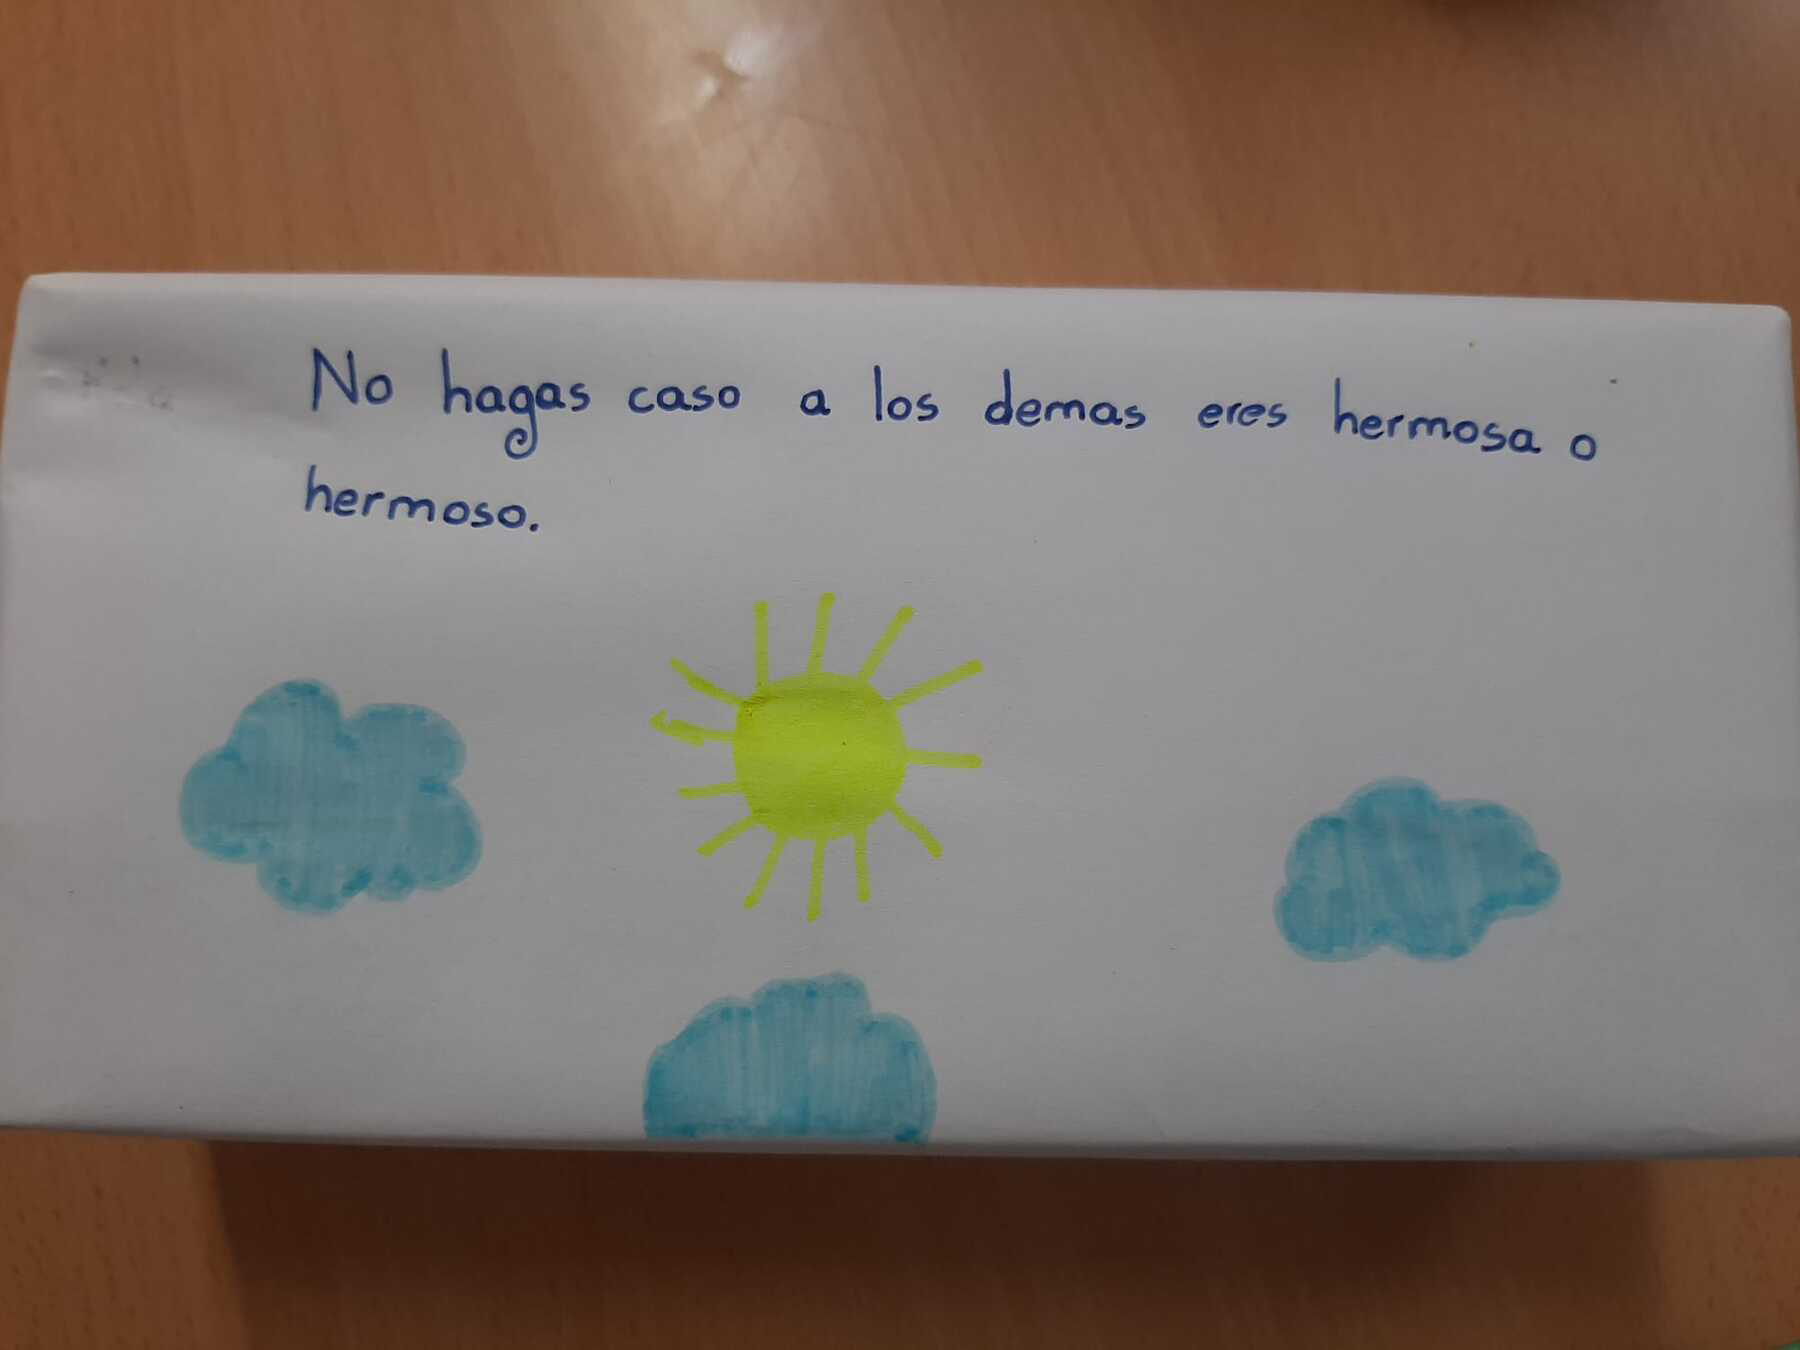 No hagas caso a los demas eres hermosa o
hermoso.